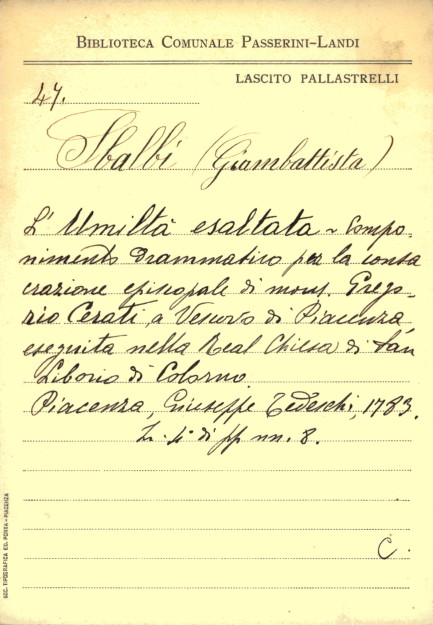 BIBLIOTECA COMUNALE PASSERINI-LANDI
LASCITO PALLASTRELLI
47.
Sbalbi (Giambattista)
L' Umiltà esaltata ~ Compo-
nimento drammatico per la consa
crazione episcopale di mons. Grego-
rio Cerati, a Vescovo di Piacenza,
eseguita nella Real Chiesa di San
Liborio di Colorno.
Piacenza, Giuseppe Tedeschi, 1783.
In 4° di pp. nn. 8.
C.
SOC. TIPOGRAFICA ED. PORTA - PIACENZA